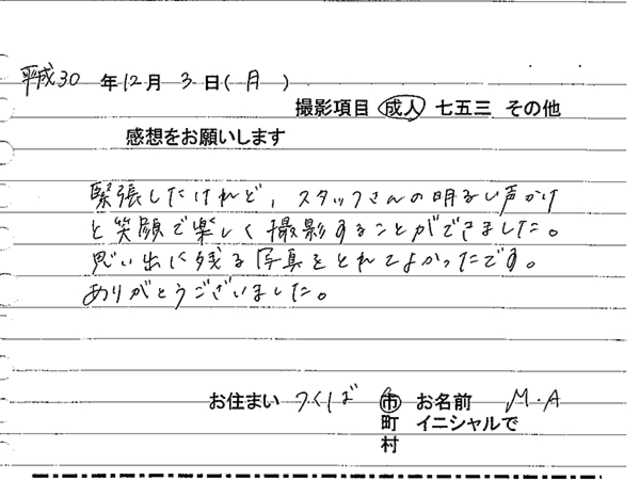 平成30年12月3日(月)
撮影項目 成人 七五三 その他
感想をお願いします
緊張したけれど、スタッフさんの明るい声かけ
と笑顔で楽しく撮影することができました。
思い出に残る写真をとれてよかったです。
ありがとうございました。
お住まい つくば 市 お名前 M.A
町 イニシャルで
村